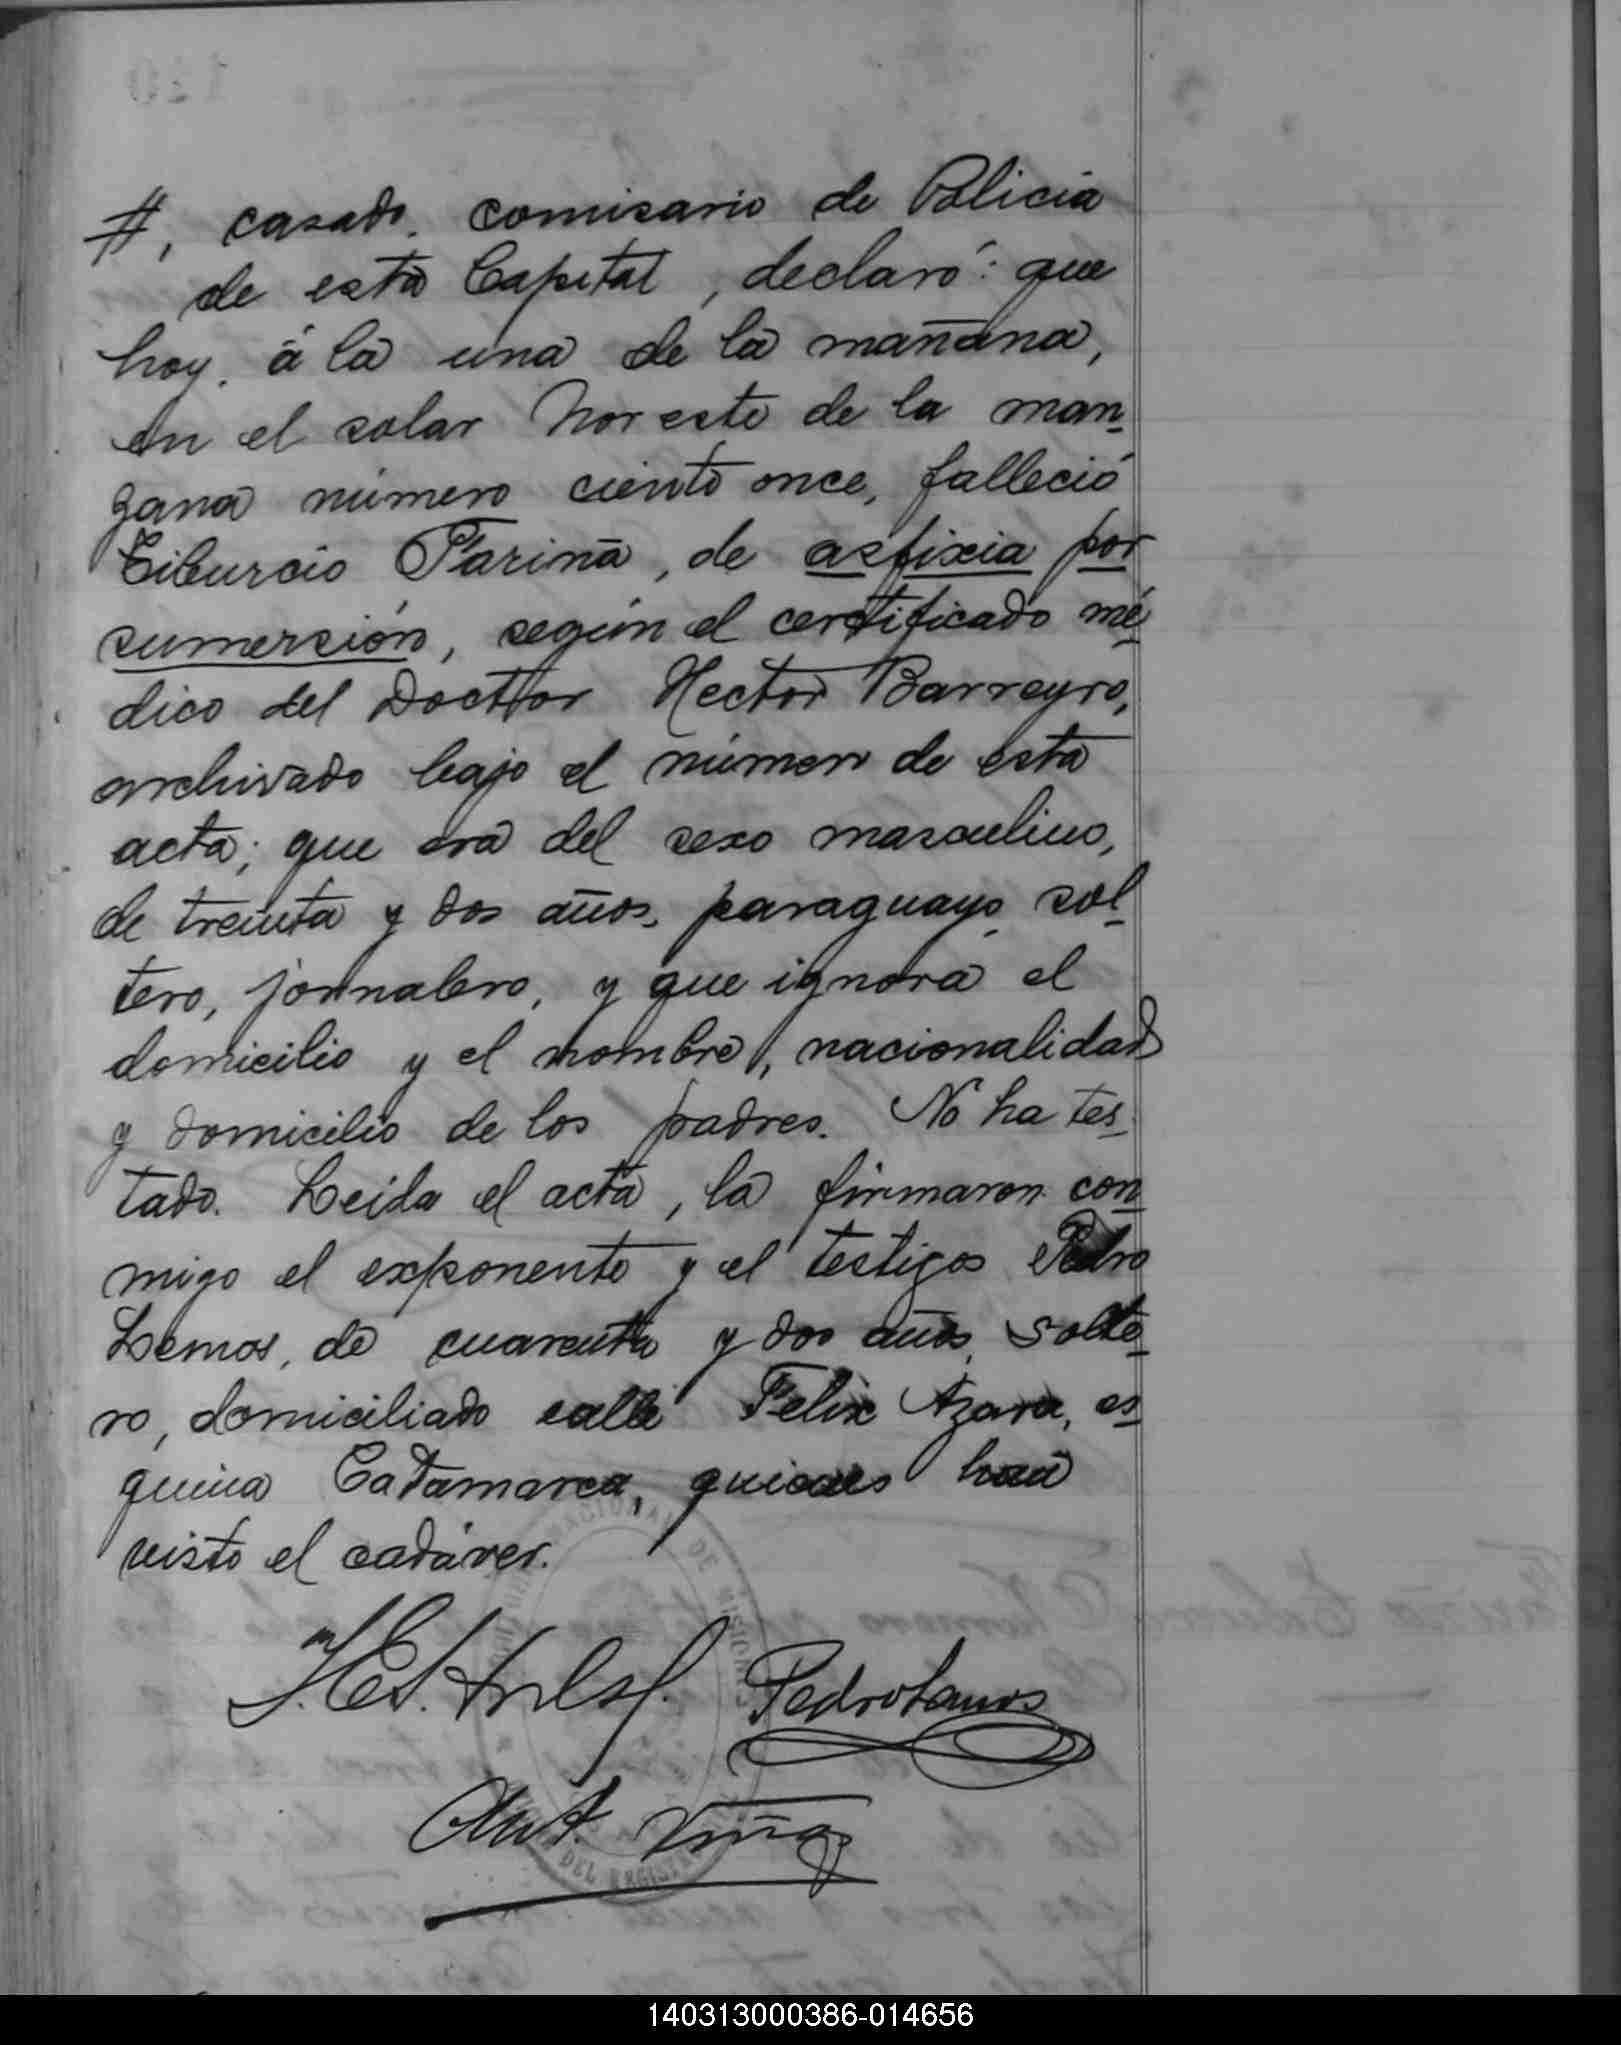 #, casado, comisario de Policia
de esta Capital, declaró: que
hoy, á la una de la mañana,
en el solar Noreste de la man-
zana número ciento once, falleció
Tiburcio Fariña, de asfixia por
sumersión, según el certificado mé-
dico del Doctor Hector Barreyro,
archivado bajo el número de esta
acta; que era del sexo masculino,
de treinta y dos años, paraguayo, sol-
tero, jornalero, y que ignora el
domicilio y el nombre, nacionalidad
y domicilio de los padres. No ha tes-
tado. Leida el acta, la firmaron con-
migo el exponente y el testigos Pedro
Lemos, de cuarenta y dos años, solte-
ro, domiciliado calle Felix Azara, es-
quina Catamarca, quienes han
visto el cadáver.
Pedro Lemos
Ant. Viña
NACIONAL DE MISIONES
DEL REGISTRO
140313000386-014656